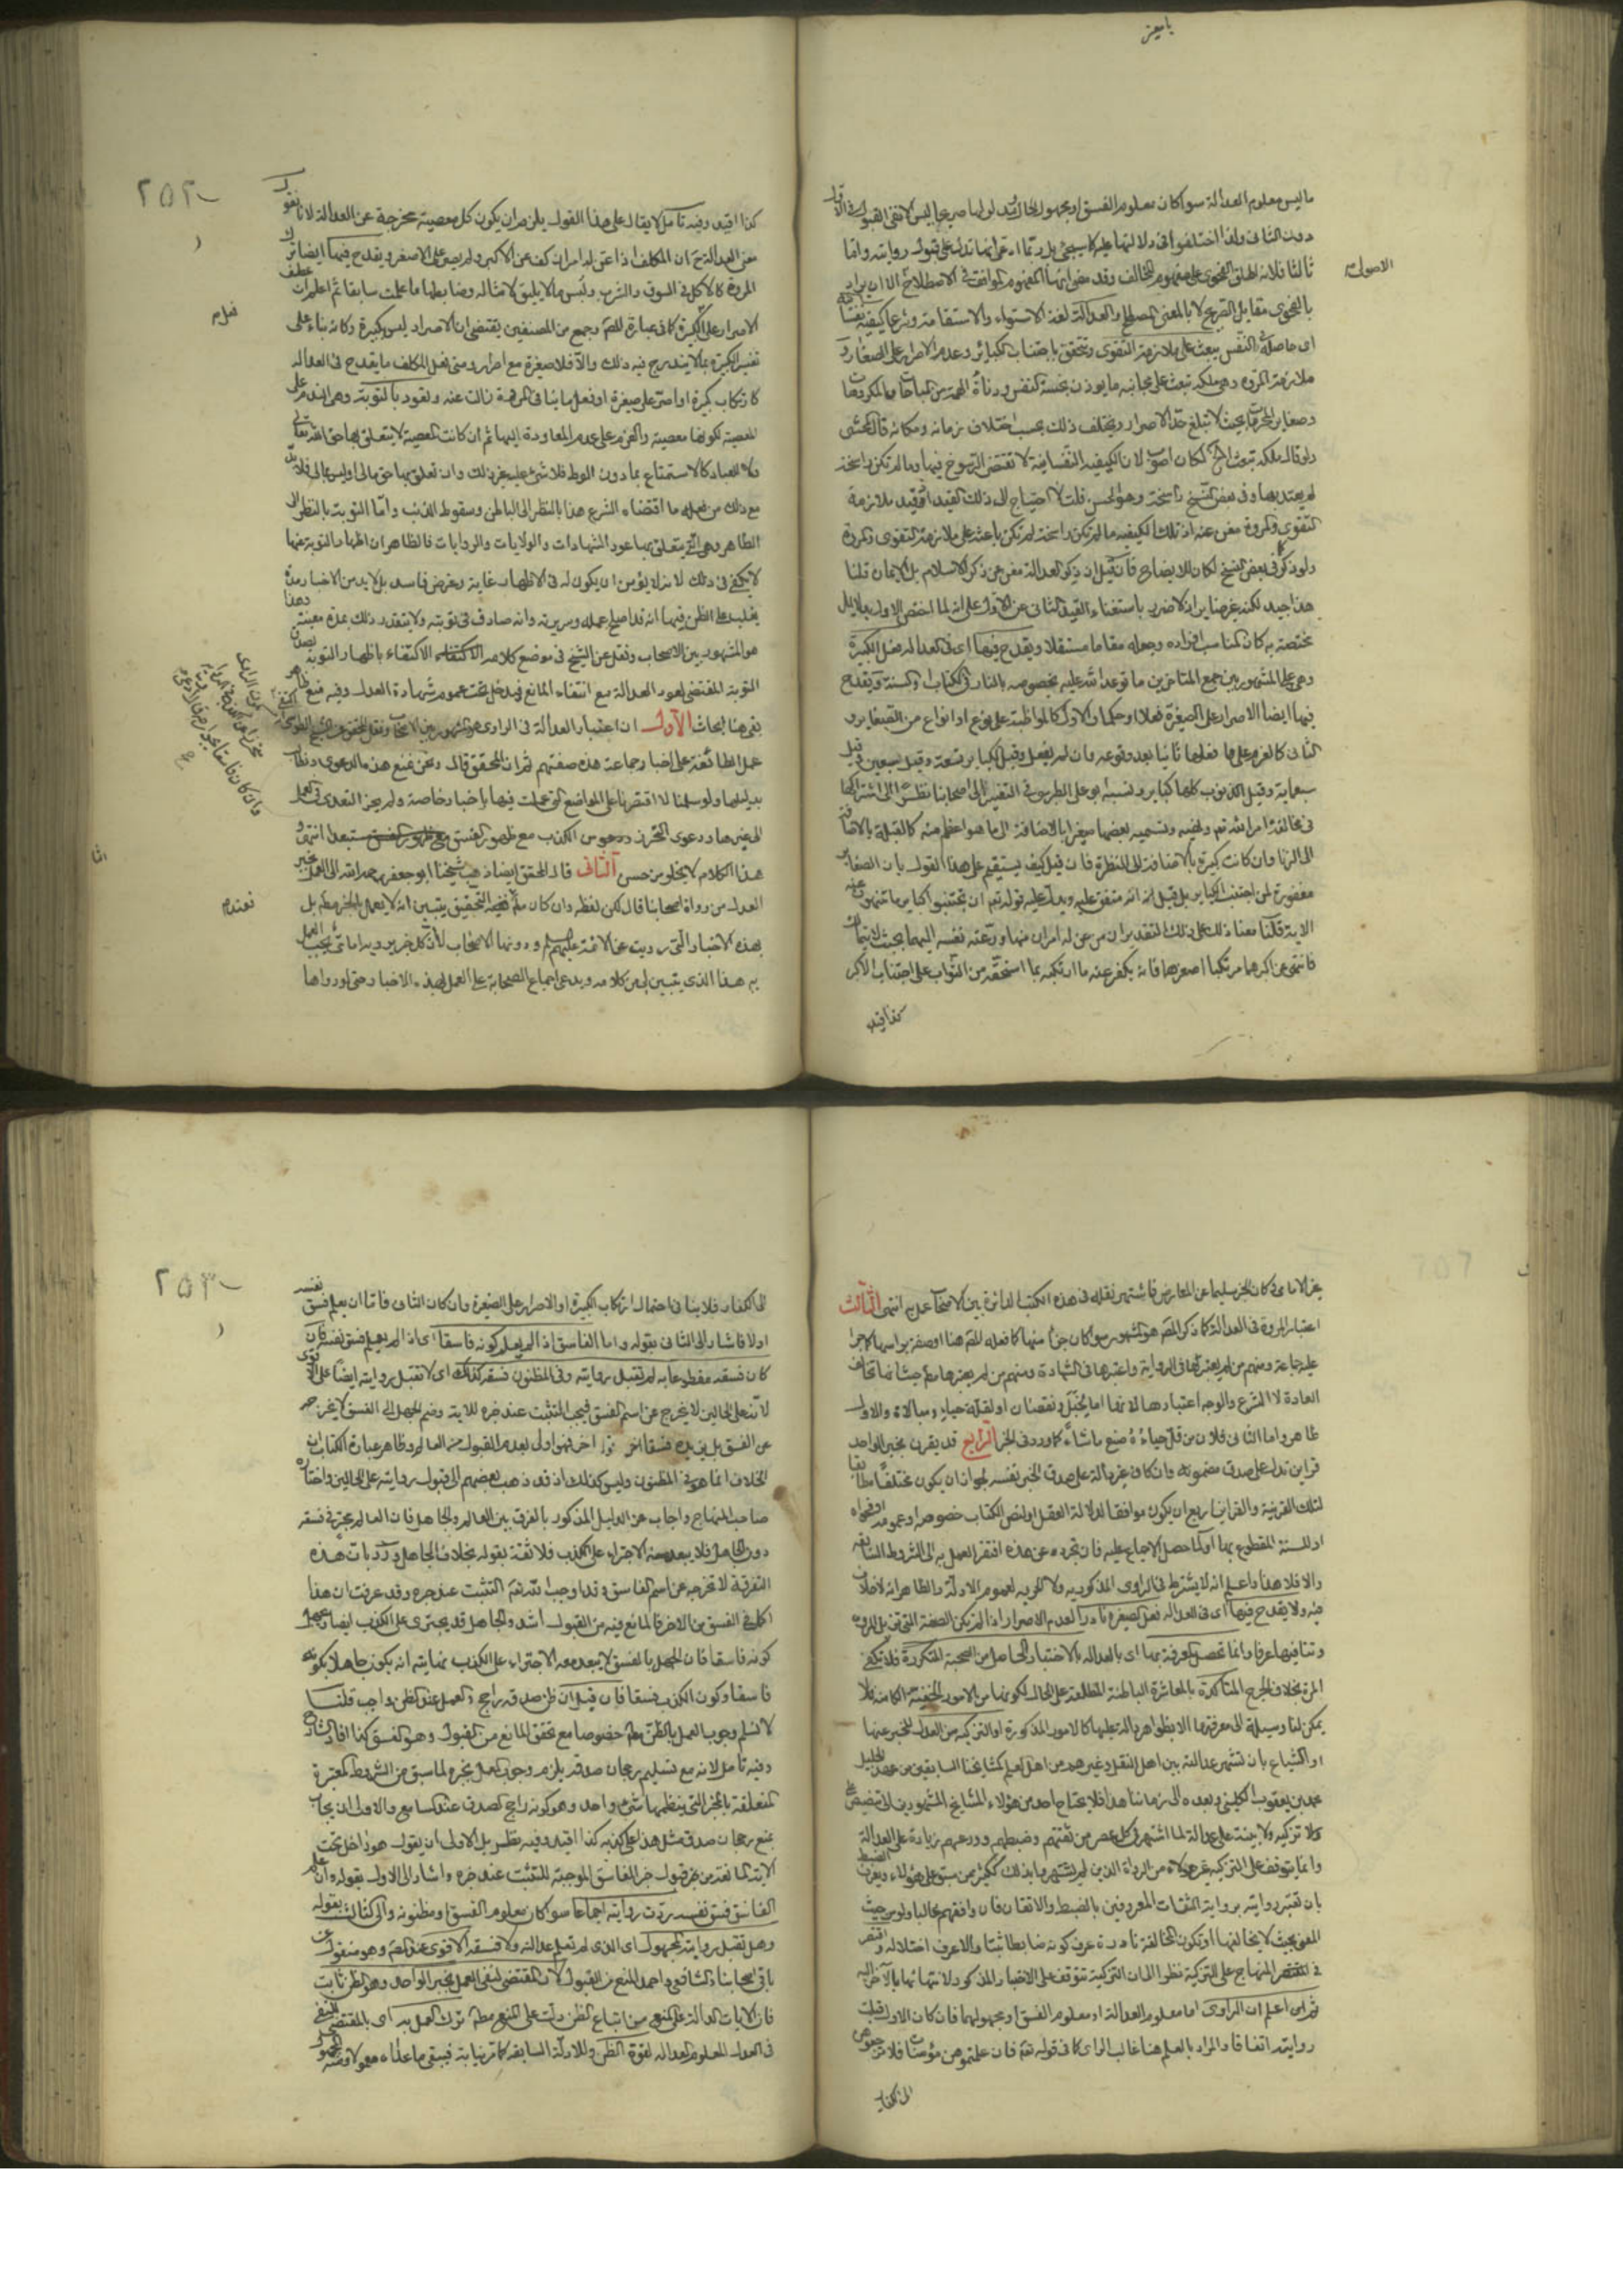 ما ليس معلوم العدالة سوا كان معلوم الفسق او مجهول الحال
دون الثانى ولذا اختلفوا فى دلالتها عليه كما سيجئ بل ربما ادعى انها تدل على قبول روايته واما
ثالثا فلانه اطلق الفحوى على مفهوم المخالف وقد مضى انها المفهوم الموافق فى الاصطلاح الا ان يراد
الاصول
بالفحوى مقابل الصريح لا بالمعنى المصطلح والعدالة لغة الاستواء والاستقامة وشرعا كيفية نفسانية
اى حاصلة فى النفس يبعث على ملازمة التقوى وتتحقق باجتناب الكبائر وعدم الاصرار على الصغائر و
ملازمة المروة وهى ملكة تبعث على مجانبة ما يوذن بخسة النفس ودناءة الهمة من المباحات والمكروهات
وصغاير المحرمات بحيث لا تبلغ حد الاصرار ويختلف ذلك بحسب اختلاف زمانه ومكانه قال المحشى
ولو قال ملكة تبعث الخ لكان اصوب لان الكيفية النفسانية لا تقتضى الرسوخ فيها وما لم تكن راسخة
لم يعتد بها وفى بعض النسخ راسخة وهو الحسن قلت لا احتياج الى ذلك القيد اذ قيد ملازمة
التقوى والمروة مغن عنه اذ تلك الكيفية ما لم تكن راسخة لم تكن باعثة على ملازمة التقوى والمروة
ولو ذكر فى بعض النسخ لكان للايضاح فان قيل ان ذكر العدالة مغن عن ذكر الاسلام بل الايمان قلنا
هذا جيد لكنه غير ضاير اذ لا ضرر باستغناء القيد الثانى عن الاول على انه لما اختص الاول بدلايل
مختصة به كان المناسب افراده وجعله مقاما مستقلا ويقدح فيها اى فى العدالة فعل الكبيرة
وهى على المشهور بين جمع المتاخرين ما توعد الله عليه بخصوصه بالنار فى الكتاب والسنة ويقدح
فيها ايضا الاصرار على الصغيرة فعلا او حكما والاول كالمواظبة على نوع او انواع من الصغاير و
الثانى كالعزم على فعلها ثانيا بعد وقوعه وان لم يفعل وقيل الكباير تسعة وقيل سبعين وقيل
سبعماية وقيل الذنوب كلها كباير ونسبه ابو على الطبرسى فى التفسير الى اصحابنا نظرا الى اشتراكها
فى مخالفة امر الله تعم ونهيه وتسمية بعضها صغيرا بالاضافة الى ما هو اعظم منه كالقبلة بالاضافة
الى الزنا وان كانت كبيرة بالاضافة الى النظرة فان قيل كيف يستقيم على هذا القول بان الصغاير
مغفورة لمن اجتنب الكباير بل قيل انه متفق عليه ويدل عليه قوله تعم ان تجتنبوا كباير ما تنهون عنه
الاية قلنا معنا ذلك على ذلك التقدير ان من عن له امران منها ودعته نفسه اليهما بحيث لا يتمالك
فانتهى عن اكبرهما مرتكبا اصغرهما فانه يكفر عنه ما ارتكبه بما استحقه من الثواب على اجتناب الاكبر
كذا قيد
٢٥٢
كذا اقيد وفيه تامل لا يقال على هذا القول يلزم ان يكون كل معصية مخرجة عن العدالة لانا نقول
معنى العدالة ح ان المكلف اذا عن له امران كف عن الاكبر ولم يصر على الاصغر ويقدح فيها ايضا ترك
المروة كالاكل فى السوق والشرب ولبس ما لا يليق لامثاله وضابطها ما علمت سابقا ثم اعلم ان عطف
الاصرار على الكبيرة كما فى عبارة المصم وجمع من المصنفين يقتضى ان الاصرار ليس كبيرة وكانه بناء على
تفسير الكبيرة بما لا يندرج فيه ذلك والا فلا صغيرة مع اصرار ومتى فعل المكلف ما يقدح فى العدالة
كارتكاب كبيرة او اصر على صغيرة او فعل ما ينافى المروة زالت عنه وتعود بالتوبة وهى الندم على
المعصية لكونها معصية والعزم على عدم المعاودة اليها ثم ان كانت المعصية لا يتعلق بها حق الله تعالى
ولا للعباد كالاستمتاع بما دون الوطء فلا شئ عليه غير ذلك وان تعلق بها حق مالى او ليس بمالى فلابد
مع ذلك من فعله ما اقتضاه الشرع هذا بالنظر الى الباطن وسقوط الذنب واما التوبة بالنظر الى
الظاهر وهى التى يتعلق بها عود الشهادات والولايات والروايات فالظاهر ان اظهار التوبة منها
لا يكفى فى ذلك لانه لا يؤمن ان يكون له فى الاظهار غاية وغرض فاسد بل لابد من الاختبار مدة
يغلب على الظن فيها انه قد اصلح عمله وسريرته وانه صادق فى توبته ولا يتقدر ذلك بمدة معينة وهذا
هو المشهور بين الاصحاب ونقل عن الشيخ فى موضع كلامه الاكتفاء باظهار التوبة
التوبة المقتضى لعود العدالة مع انتفاء المانع فيدخل تحت عموم شهادة العدل وفيه منع ظاهر
بقى هنا ابحاث الاول ان اعتبار العدالة فى الراوى هو المشهور بين الاصحاب ونقل المحقق عن الشيخ
عمل الطائفة على اخبار جماعة هذه صفتهم ثم ان المحقق قال ونحن نمنع هذه الدعوى ونطالب
بدليلها ولو سلمنا لاقتصرنا على المواضع التى عملت فيها باخبار خاصة ولم يجز التعدى فى العمل
الى غيرها ودعوى التحرز من الكذب مع ظهور الفسق مستبعد انتهى و
هذا الكلام لا يخلو من حسن الثانى قال المحقق ايضا ذهب شيخنا ابو جعفر رحمه الله الى العمل بخبر
العدل من رواة اصحابنا قال لكن لفظه وان كان مطلقا فعند التحقيق يتبين انه لا يعمل بالخبر مطلقا بل
بهذه الاخبار التى رويت عن الائمة عليهم السلم ودونها الاصحاب لا ان كل خبر يرويه امامى يجب العمل
به هذا الذى يتبين لى من كلامه ويدعى اجماع الصحابة على العمل بهذه الاخبار حتى لو رواها
غير الامامى وكان الخبر سليما عن المعارض فاشتهر نقله فى هذه الكتب الدائرة بين الاصحاب عمل به انتهى الثالث
اعتبار المروة فى العدالة كما ذكر المصم هو المشهور سوا كان جزأ منها كما فعله المصم هنا او صفة براسها كما جرى
عليه جماعة ومنهم من لم يعتبرها فى الرواية واعتبرها فى الشهادة ومنهم من لم يعتبرها مطلقا حيث انها تخالف
العادة لا الشرع والوجه اعتبارها لانها اما بخبل ونقصان او لقلة حياء ومبالاة والاول
ظاهر واما الثانى فلان من قل حياءه صنع ما شاء كما ورد فى الخبر الرابع قد يقرن بخبر الواحد
قراين تدل على صدق مضمونه وان كان غير دالة على صدق الخبر نفسه لجواز ان يكون مختلقا مطابقا
لتلك القرينة والقراين اربع ان يكون موافقا لدلالة العقل او لنص الكتاب خصوصه او عمومه او فحواه
او للسنة المقطوع بها او لما حصل الاجماع عليه فان تجرد عن هذه افتقر العمل به الى الشروط السابقة
والا فلا هذا واعلم انه لا يشترط فى الراوى الذكورية ولا الحرية لعموم الادلة والظاهر انه لا خلاف
فيه ولا يقدح فيها اى فى العدالة فعل الصغيرة نادرا لعدم الاصرار اذا لم تكن الصغيرة
وتنافيها عرفا وانما تحصل المعرفة بها اى بالعدالة بالاختبار الحاصل من الصحبة المتكررة فلا تكفى
المرة بخلاف الجرح المتاكدة بالمعاشرة الباطنة المطلعة على الحال لكونها من الامور الخفية الكامنة فلا
يمكن لنا وسيلة الى معرفتها الا بظواهر دالة عليها كالامور المذكورة او التزكية من العدل المخبر عنها
او الشياع بان تشتهر عدالته بين اهل النقل وغيرهم من اهل العلم كمشايخنا السابقين من عهد الجليل
محمد بن يعقوب الكلينى وبعده الى زماننا هذا فلا يحتاج احد من هؤلاء المشايخ المشهورين الى تنصيص على
ولا تزكية ولا بينة على عدالة لما اشتهر فى كل عصر من ثقتهم وضبطهم وورعهم زيادة على العدالة
وانما يتوقف على التزكية غير هؤلاء من الرواة الذين لم يشتهروا بذلك ككثير ممن سبق على هؤلاء ويعرف الضبط
بان تعتبر روايته برواية الثقات المعروفين بالضبط والاتقان فان وافقهم غالبا ولو من حيث
المعنى بحيث لا يخالفها او تكون المخالفة نادرة عرف كونه ضابطا ثبتا والا عرف اختلاله واقتصر
فى المنهاج على التزكية نظرا الى ان التزكية تتوقف على الاختبار المذكور ولانتهائها بالآخرة اليه
ثم انى اعلم ان الراوى اما معلوم العدالة او معلوم الفسق او مجهولهما فان كان الاول قبلت
روايته اتفاقا والمراد بالعلم هنا غالب الراى كما فى قوله تعم فان علمتموهن مؤمنات فلا ترجعوهن
الى الكفار
٢٥٣
الى الكفار فلا ينافى احتمال ارتكاب الكبيرة او الاصرار على الصغيرة وان كان الثانى فاما ان يعلم فسق نفسه
اولا فاشار الى الثانى بقوله واما الفاسق اذا لم يعلم كونه فاسقا اى اذا لم يعلم فسق نفسه فان
كان فسقه مقطوعا به لم تقبل روايته وفى المظنون فسقه كذلك اى لا تقبل روايته ايضا على الاقوى
لانه على الحالين لا يخرج عن اسم الفسق فيجب التثبت عند خبره للاية وضم الجهل الى الفسق لا يخرجه
عن الفسق بل يزيده فسقا اخر فهو اولى بعدم القبول من العالم وظاهر عبارة الكتاب ان
الخلاف انما هو فى المظنون وليس كذلك اذ قد ذهب بعضهم الى قبول روايته على الحالين واختاره
صاحب المنهاج واجاب عن الدليل المذكور بالفرق بين العالم والجاهل فان العالم يجترى فى فسقه
دون الجاهل فلا يبعد منه الاجتراء على الكذب فلا ثقة بقوله بخلاف الجاهل ورد بان هذه
التفرقة لا تخرجه عن اسم الفاسق وقد اوجب الله تعم التثبت عند خبره وقد عرفت ان هذا
اكمل فى الفسق من الاخر فالمانع فيه من القبول اشد والجاهل قد يجترى على الكذب ايضا ويجهل
كونه فاسقا فان الجهل بالفسق لا يبعد معه الاجتراء على الكذب نهايته انه يكون جاهلا بكونه
فاسقا وكون الكذب فسقا فان قيل ان ظن صدقه راجح والعمل عند الظن واجب قلنا
لا نسلم وجوب العمل بالظن مطلقا خصوصا مع تحقق المانع من القبول وهو الفسق كذا افاد الشارح
وفيه تامل لانه مع تسليم رجحان صدقه يلزم وجوب العمل بخبره لما سبق من الشروط المعتبرة
المتعلقة بالخبر التى ينظمها شئ واحد وهو كونه راجح الصدق عند السامع والاولى ان يجاب
بمنع رجحان صدق مثل هذا على كذبه كذا اقيد وفيه نظر بل الاولى ان يقول هو داخل تحت
الاية المانعة من قبول خبر الفاسق الموجبة للتثبت عند خبره واشار الى الاول بقوله وان علم
الفاسق فسق نفسه ردت روايته اجماعا سوا كان معلوم الفسق او مظنونه والى الثالث بقوله
وهل تقبل رواية المجهول اى الذى لم تعلم عدالته ولا فسقه الاقوى عند المصم وهو منقول عن
باقى اصحابنا والشافعى واحمد المنع من القبول لان المقتضى لنفى العمل بخبر الواحد وهو الظن ثابت
فان الايات الدالة على المنع من اتباع الظن دلت على المنع مطلقا ترك العمل به اى بالمقتضى للنفى
فى العدل المعلوم العدالة لقوة الظن وللادلة السابقة